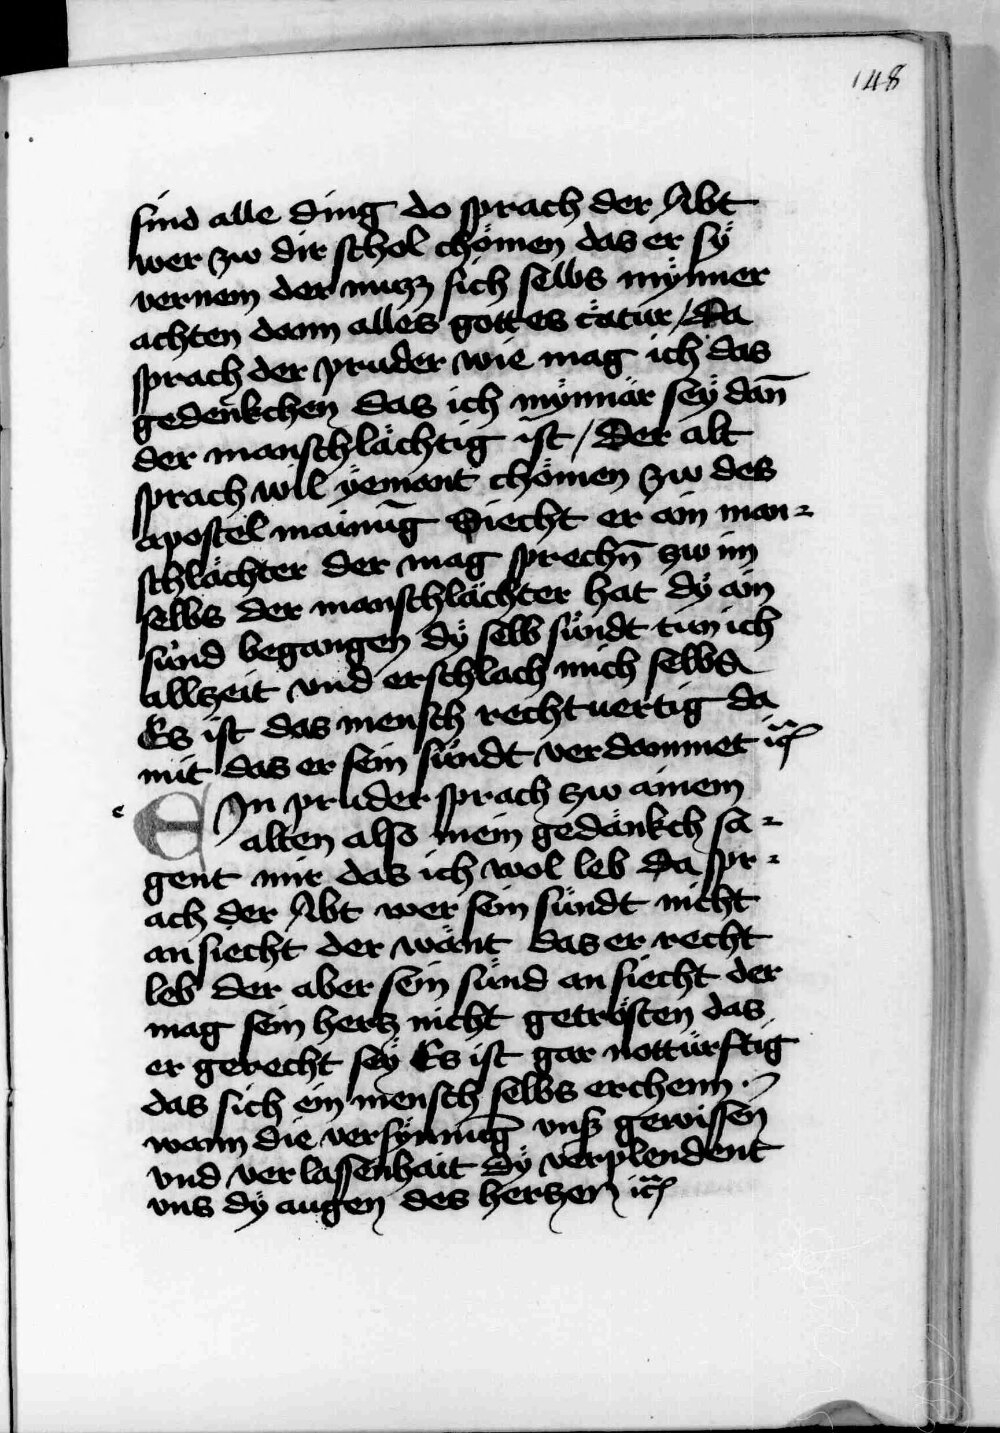 148
sind alle ding do sprach der Abt
wer zw dir schol chömen das er sÿ
vernem der muzz sich selbs mÿnner
achten dann alles gottes c̈atur / Da
sprach der pruder wie mag ich das
gedenkchen das ich mÿnnär seÿ dan̄
der manschlächtig ist / Der alt
sprach wil ÿemant chömen zw des
apostel mainūg Siecht er ain man=
schlächter der mag sprechn̄ zw im
selbs der manschlächter hat dÿ ain
sünd begangen dÿ selb sündt tun ich
allzeit vnd erschlach mich selbs
Es ist das mensch rechtuertig da
mit das er sein sündt verdammet
e
EIn pruder sprach zw ainem
alten also mein gedänkch sa=
gent mir das ich wol leb Da spr=
ach der Abt wer sein sündt nicht
an siecht der wänt das er recht
leb der aber sein sünd an siecht der
mag sein hertz nicht getrösten das
er gerecht seÿ Es ist gar nottürftig
das sich ein mensch selbs erchenn
wann die versÿnnūg vnß gewissen
vnd verlassenhait dÿ verplendent
vns dÿ augen des hertzen